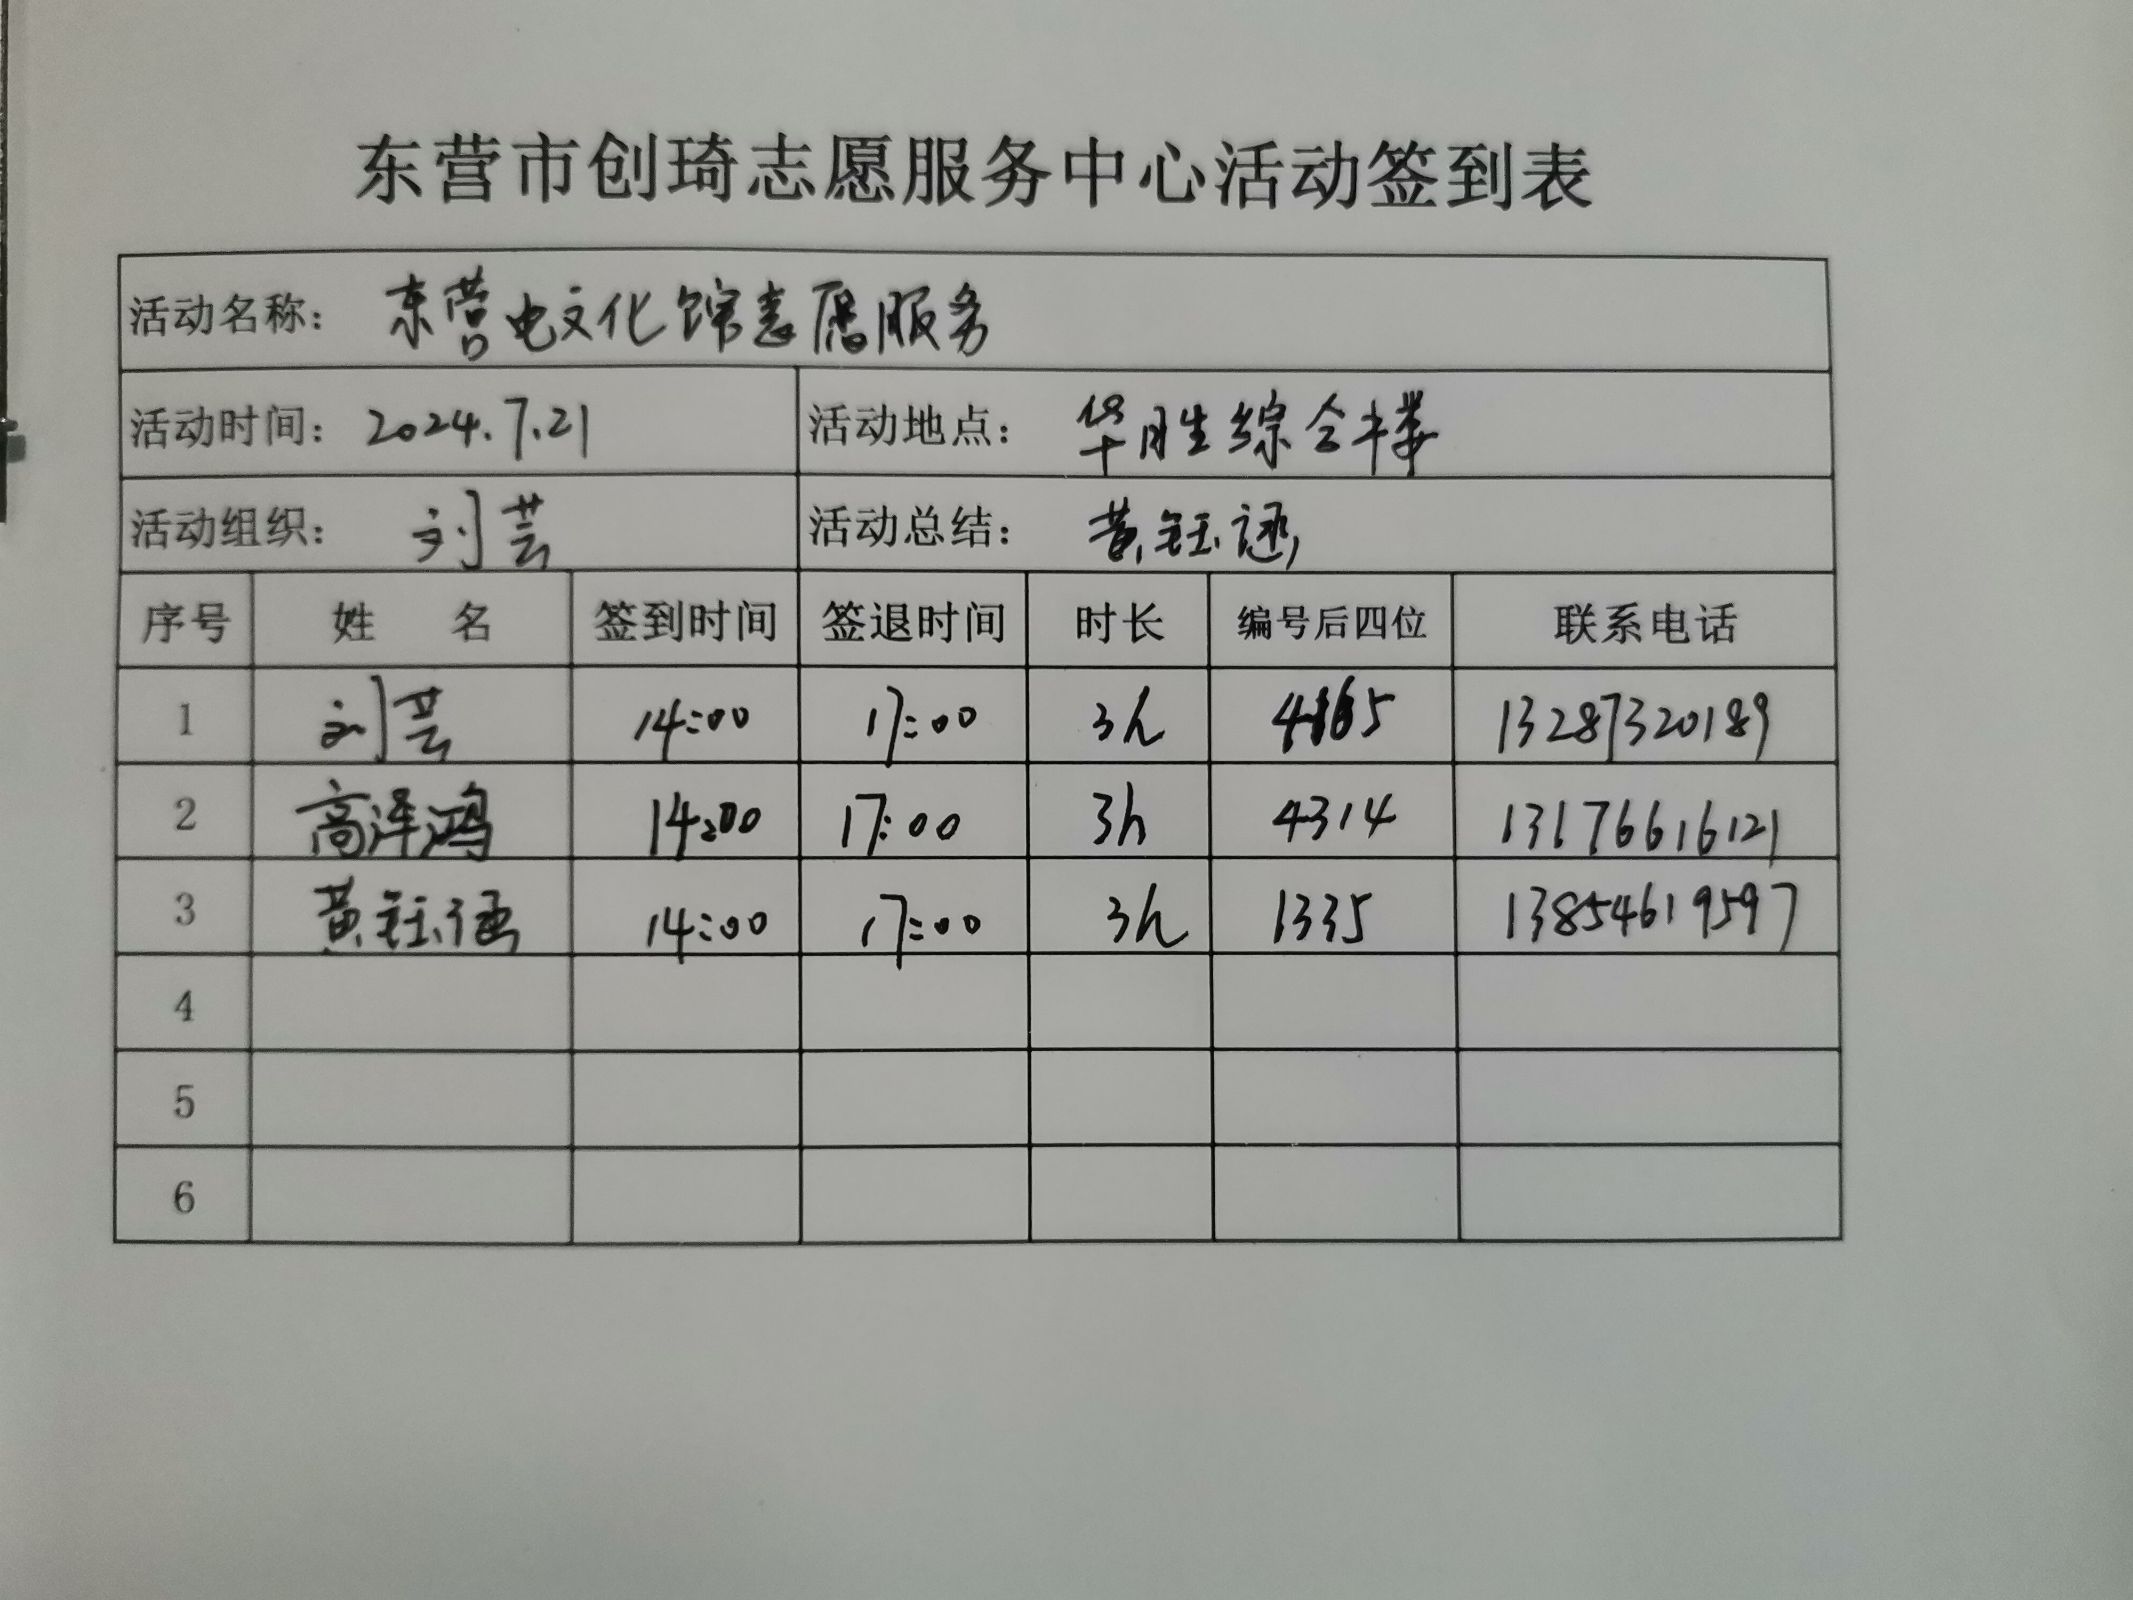 东营市创琦志愿服务中心活动签到表
活动名称： 东营电文化馆志愿服务
活动时间： 2024.7.21 活动地点： 华胜综合楼
活动组织： 刘芸 活动总结： 黄钰涵
序号 姓 名 签到时间 签退时间 时长 编号后四位 联系电话
1 刘芸 14:00 17:00 3h 13287320189
2 高泽鸿 14:00 17:00 3h 4314 13176616121
3 黄钰涵 14:00 17:00 3h 1335 13854619597
4
5
6